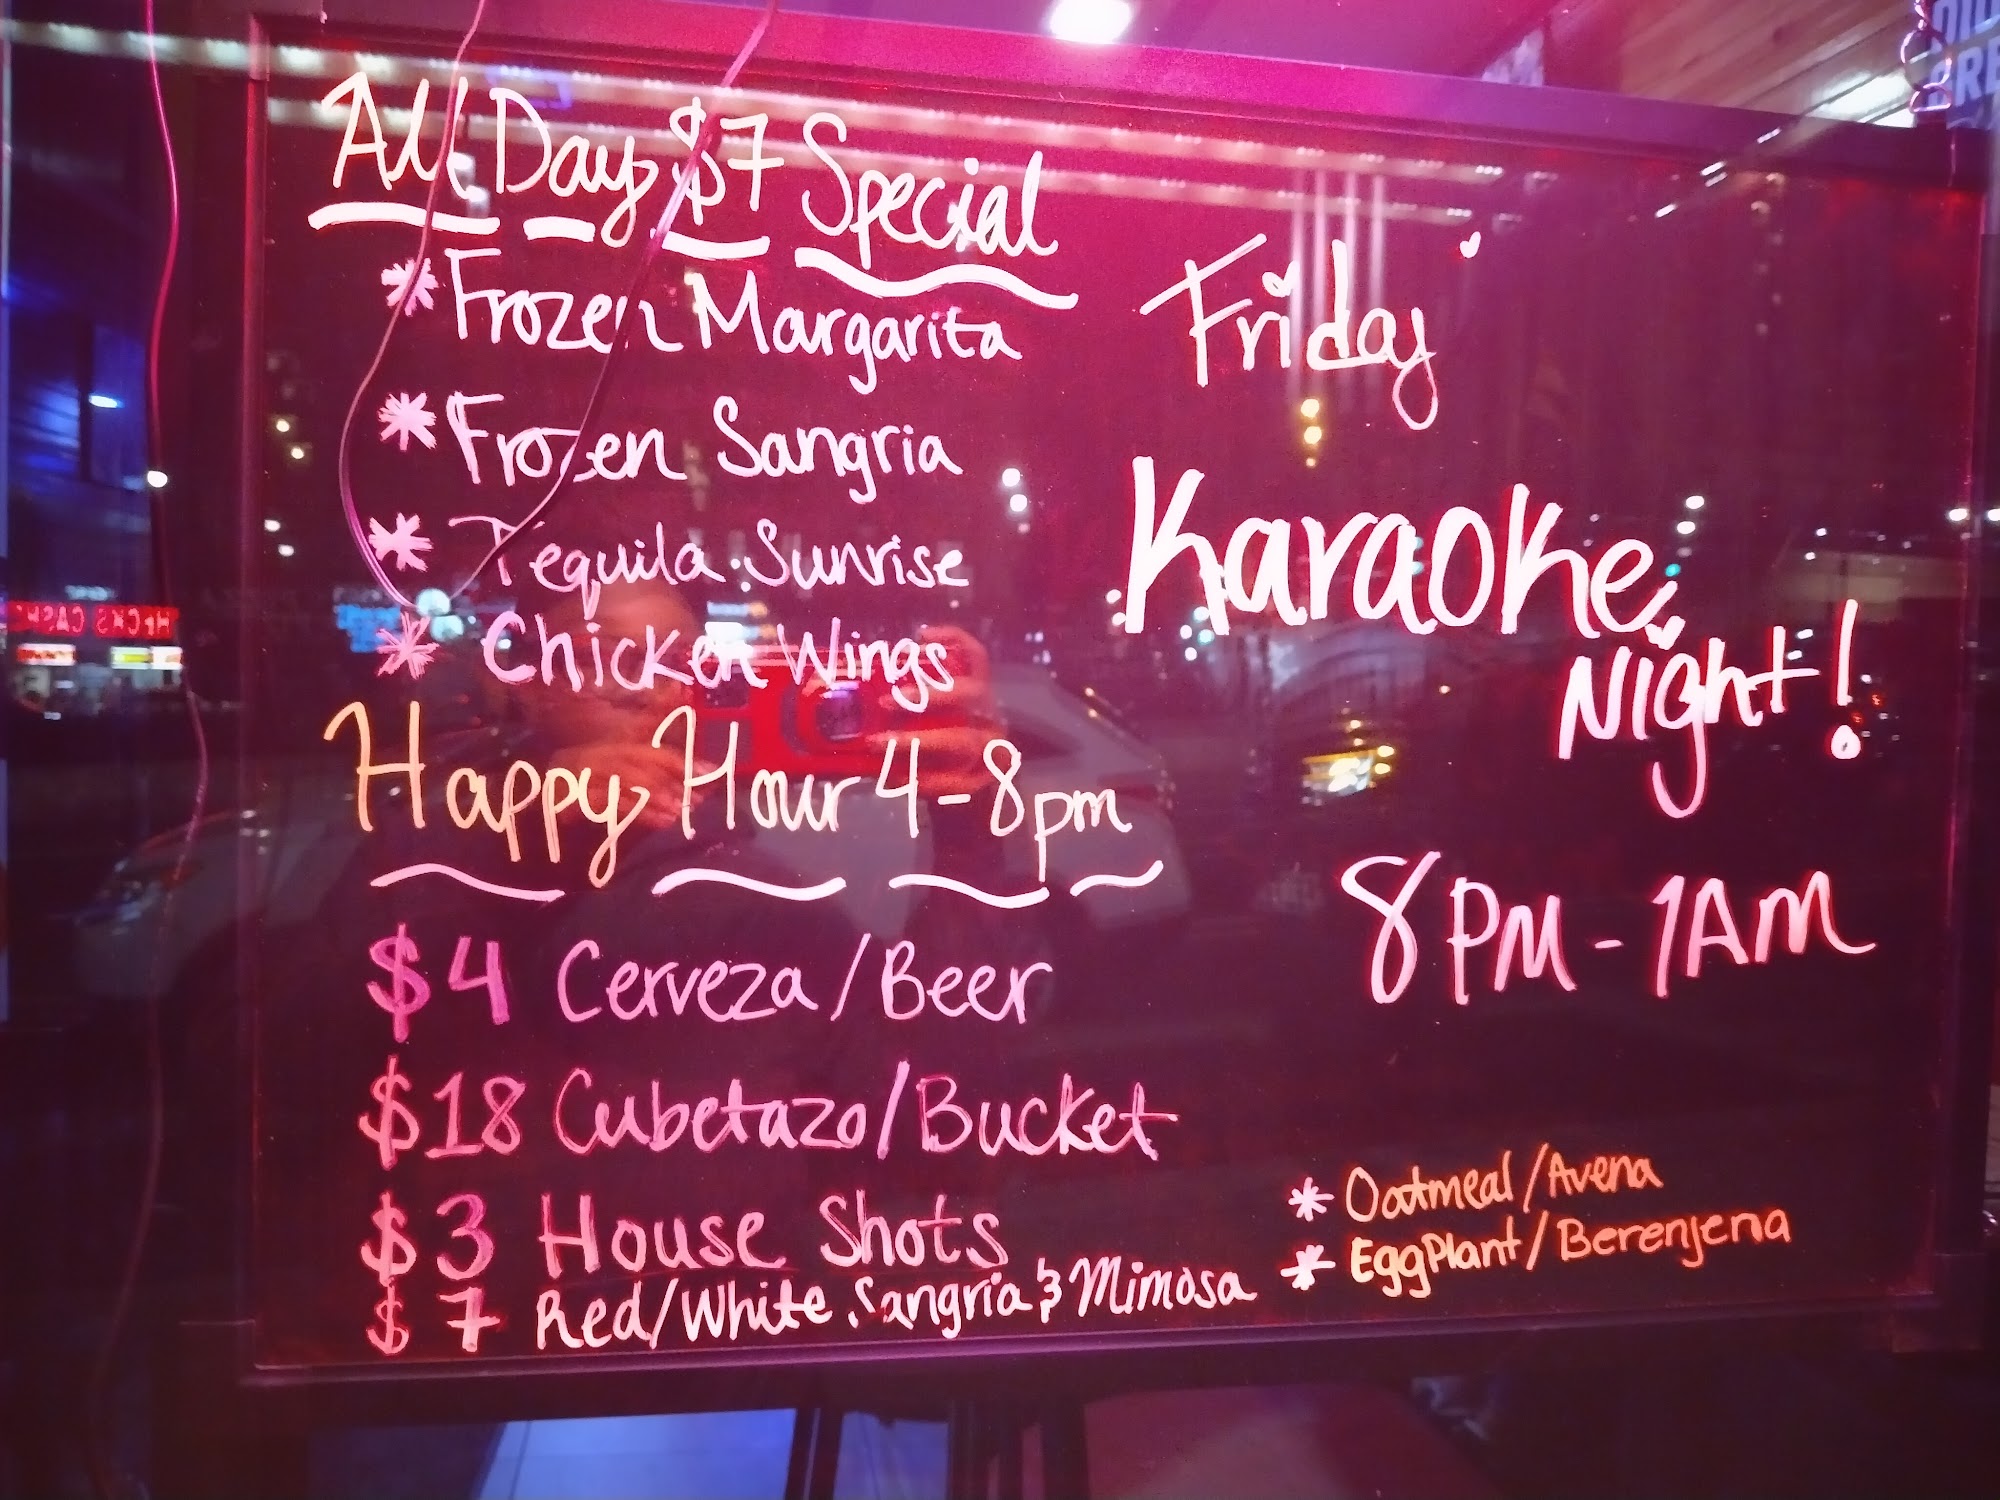 All Day $7 Special
* Frozen Margarita
* Frozen Sangria
* Tequila Sunrise
* Chicken Wings
Happy Hour 4-8pm
$4 Cerveza/Beer
$18 Cubetazo/Bucket
$3 House Shots
$7 Red/White Sangria & Mimosa
Friday
Karaoke
Night!
8PM-1AM
* Oatmeal/Avena
* EggPlant/Berenjena